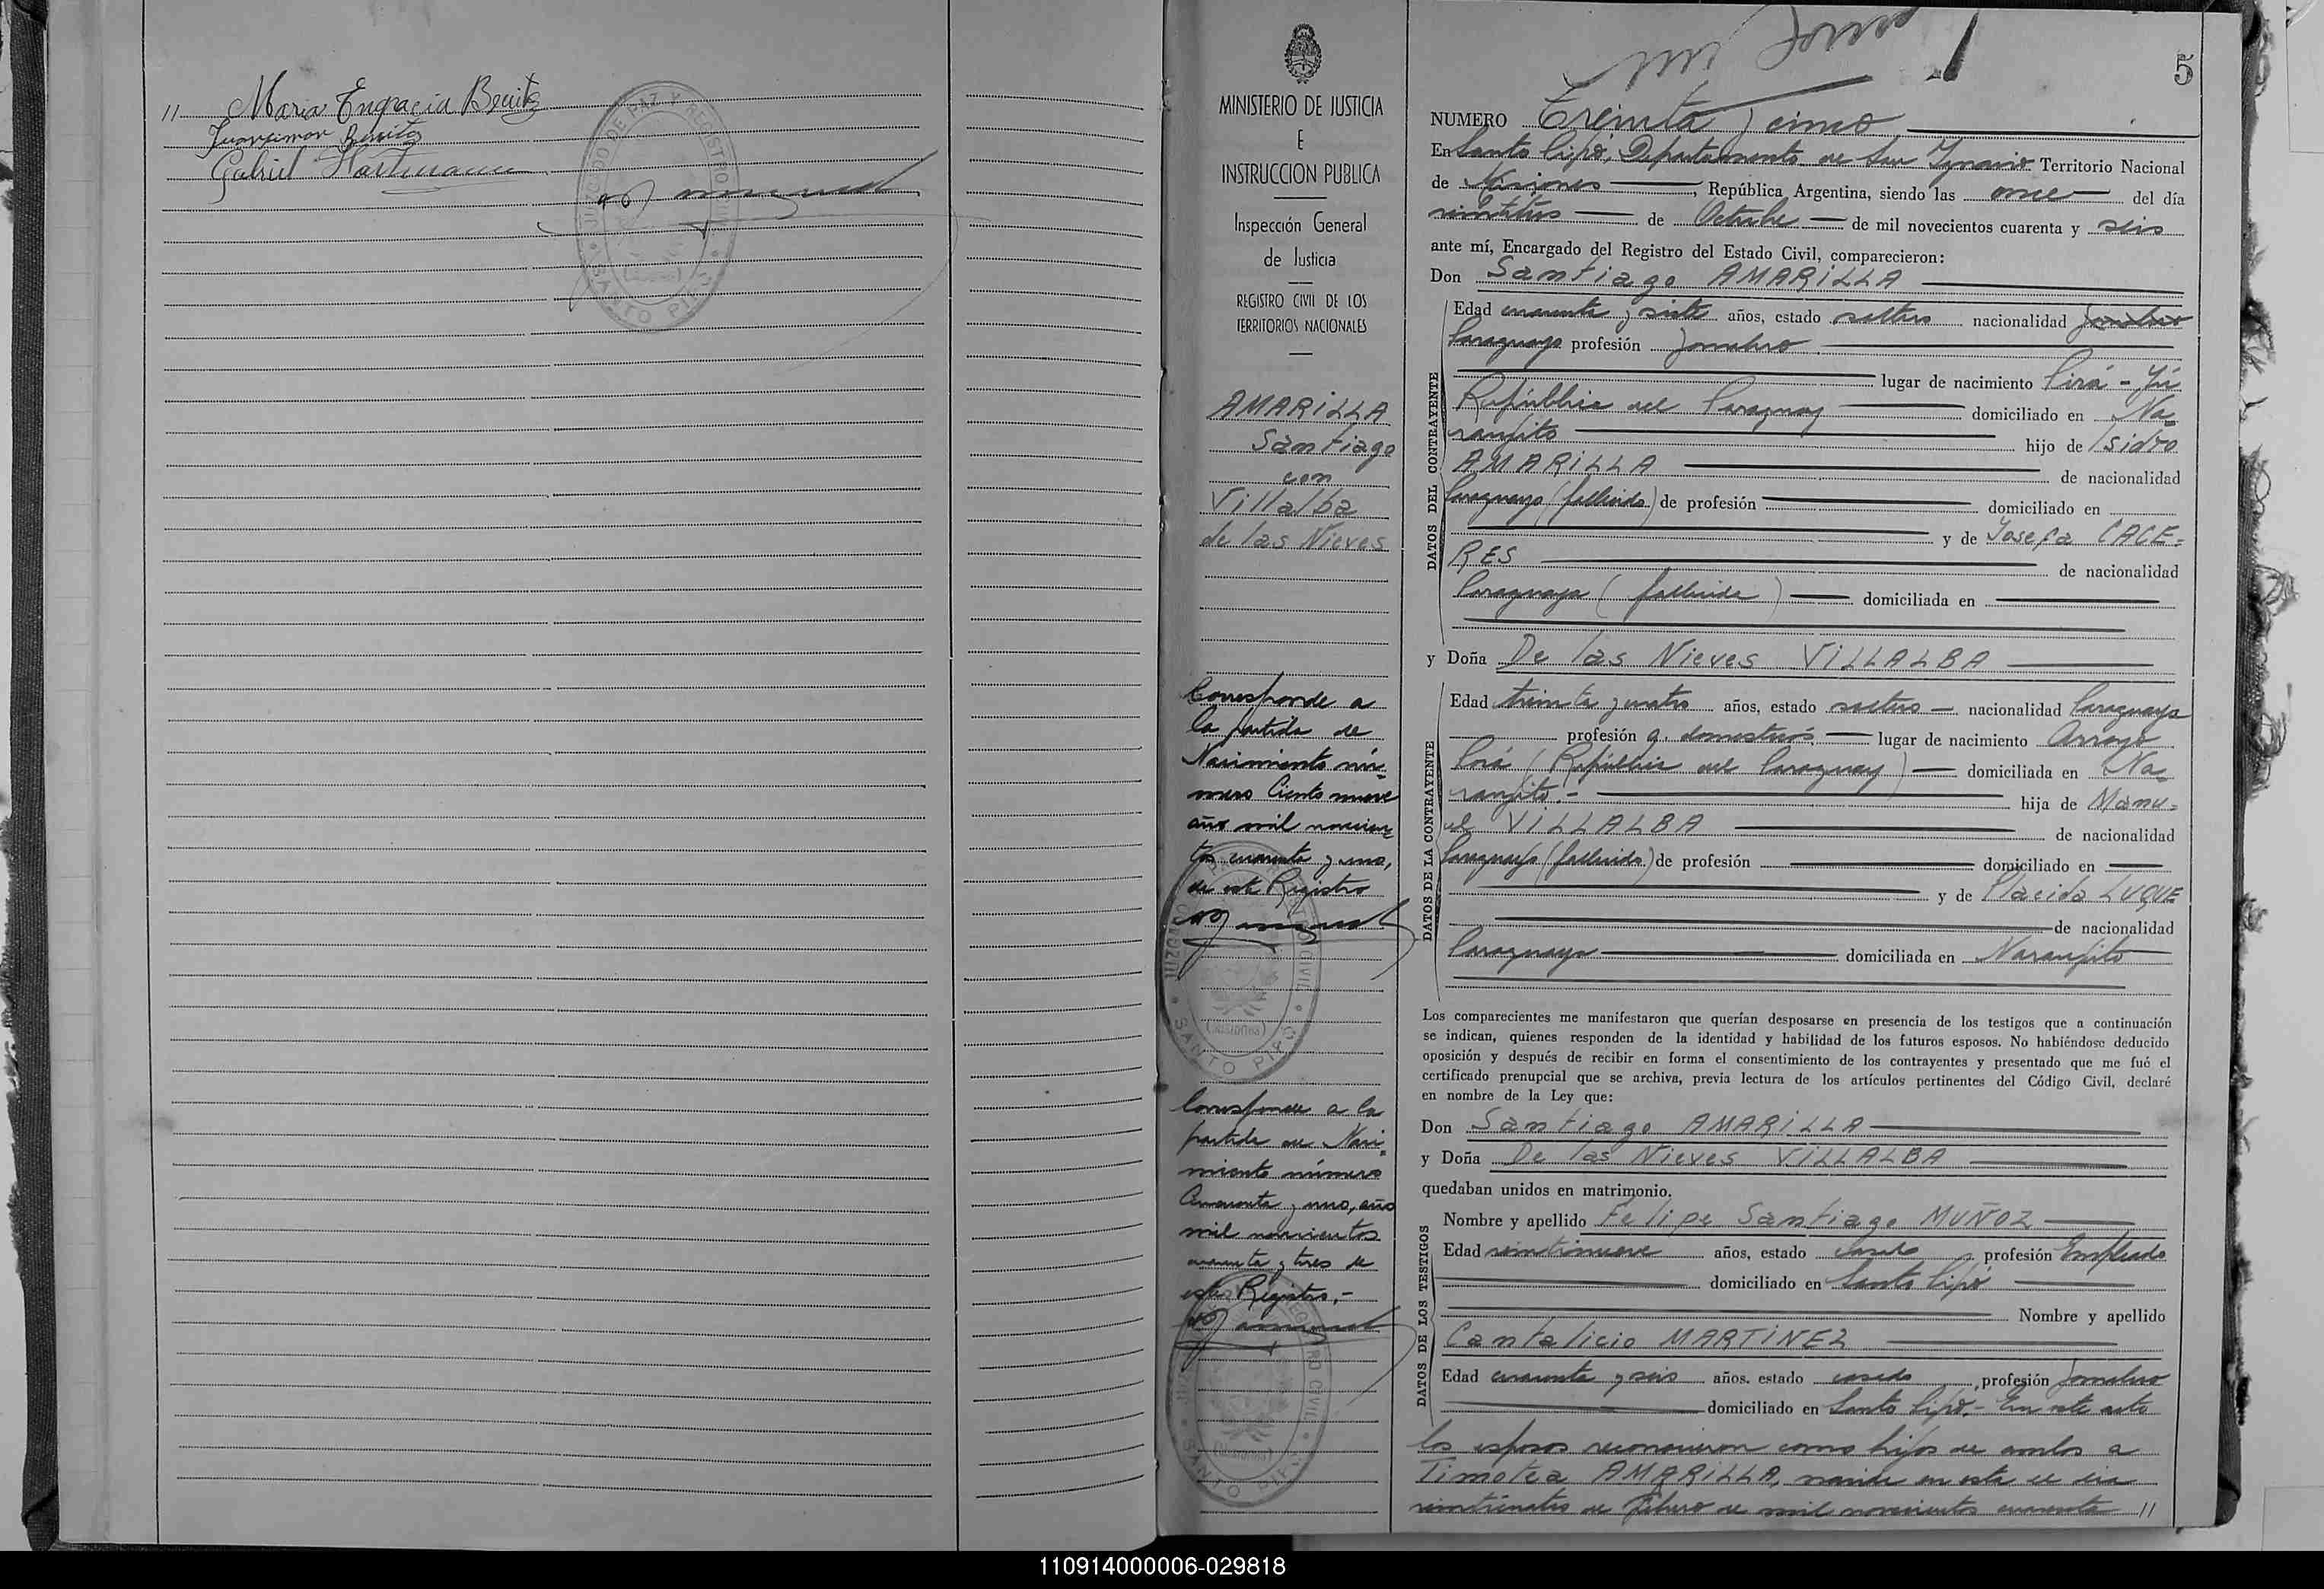 11 Maria Engracia Benitez
Benitez
Gabriel Hartmann
JUZGADO DE PAZ Y REGISTRO CIVIL
SANTO PIPO
MINISTERIO DE JUSTICIA
E
INSTRUCCION PUBLICA
Inspección General
de Justicia
REGISTRO CIVIL DE LOS
TERRITORIOS NACIONALES
AMARILLA
Santiago
con
Villalba
de las Nieves
Corresponde a
la partida de
Nacimiento nú-
mero Ciento nueve
año mil novecien-
tos cuarenta y uno,
de este Registro
SANTO PIPO
(Misiones)
Corresponde a la
partida de Naci-
miento número
Cuarenta y uno, año
mil novecientos
cuarenta y tres de
este Registro.-
SANTO PIPO
(Misiones)
5
NUMERO Treinta y cinco
En Santo Pipó, Departamento de San Ignacio Territorio Nacional
de Misiones, República Argentina, siendo las once del día
veintitrés de Octubre de mil novecientos cuarenta y seis
ante mí, Encargado del Registro del Estado Civil, comparecieron:
Don Santiago AMARILLA
DATOS DEL CONTRAYENTE
Edad cuarenta y siete años, estado soltero nacionalidad Jornalero
Paraguayo profesión Jornalero
lugar de nacimiento Pirá-Yú
República del Paraguay domiciliado en Na-
ranjito hijo de Isidro
AMARILLA de nacionalidad
Paraguayo (fallecido) de profesión domiciliado en
y de Josefa CACE-
RES de nacionalidad
Paraguaya (fallecida) domiciliada en
y Doña De las Nieves VILLALBA
DATOS DE LA CONTRAYENTE
Edad treinta y cuatro años, estado soltera nacionalidad Paraguaya
profesión q. domésticos lugar de nacimiento Arroyo
Porá (República del Paraguay) domiciliada en Na-
ranjito.- hija de Manu-
el VILLALBA de nacionalidad
Paraguayo (fallecido) de profesión domiciliado en
y de Placida LUQUE
de nacionalidad
Paraguaya domiciliada en Naranjito
Los comparecientes me manifestaron que querían desposarse en presencia de los testigos que a continuación
se indican, quienes responden de la identidad y habilidad de los futuros esposos. No habiéndose deducido
oposición y después de recibir en forma el consentimiento de los contrayentes y presentado que me fué el
certificado prenupcial que se archiva, previa lectura de los artículos pertinentes del Código Civil, declaré
en nombre de la Ley que:
Don Santiago AMARILLA
y Doña De las Nieves VILLALBA
quedaban unidos en matrimonio.
DATOS DE LOS TESTIGOS
Nombre y apellido Felipe Santiago MUÑOZ
Edad veintinueve años, estado casado profesión Empleado
domiciliado en Santo Pipó
Nombre y apellido
Cantalicio MARTINEZ
Edad cuarenta y seis años, estado casado, profesión Jornalero
domiciliado en Santo Pipó.- En este acto
los esposos reconocieron como hijos de ambos a
Timotea AMARILLA, nacida en esta el día
veinticuatro de Febrero de mil novecientos cuarenta 11
110914000006-029818